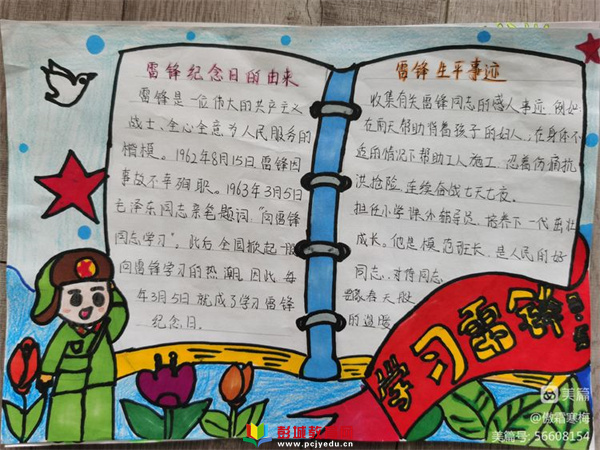 雷锋纪念日的由来
雷锋是一位伟大的共产主义
战士、全心全意为人民服务的
楷模。1962年8月15日雷锋因
事故不幸殉职。1963年3月5日
毛泽东同志亲笔题词“向雷锋
同志学习”。此后全国掀起一股
向雷锋学习的热潮,因此每
年3月5日就成了学习雷锋
纪念日.
雷锋生平事迹
收集有关雷锋同志的感人事迹,例如
在雨天帮助背着孩子的妇人,在身体不
适的情况下帮助工人施工,忍着伤痛抗
洪抢险,连续奋战七天七夜.
担任小学课外辅导员,培养下一代茁壮
成长。他是模范班长,是人民的好
同志,对待同志
春天般
的温暖
学习雷锋
美篇
@傲霜寒梅
美篇号:56608154
彭城教育网
www.pcjyedu.cn